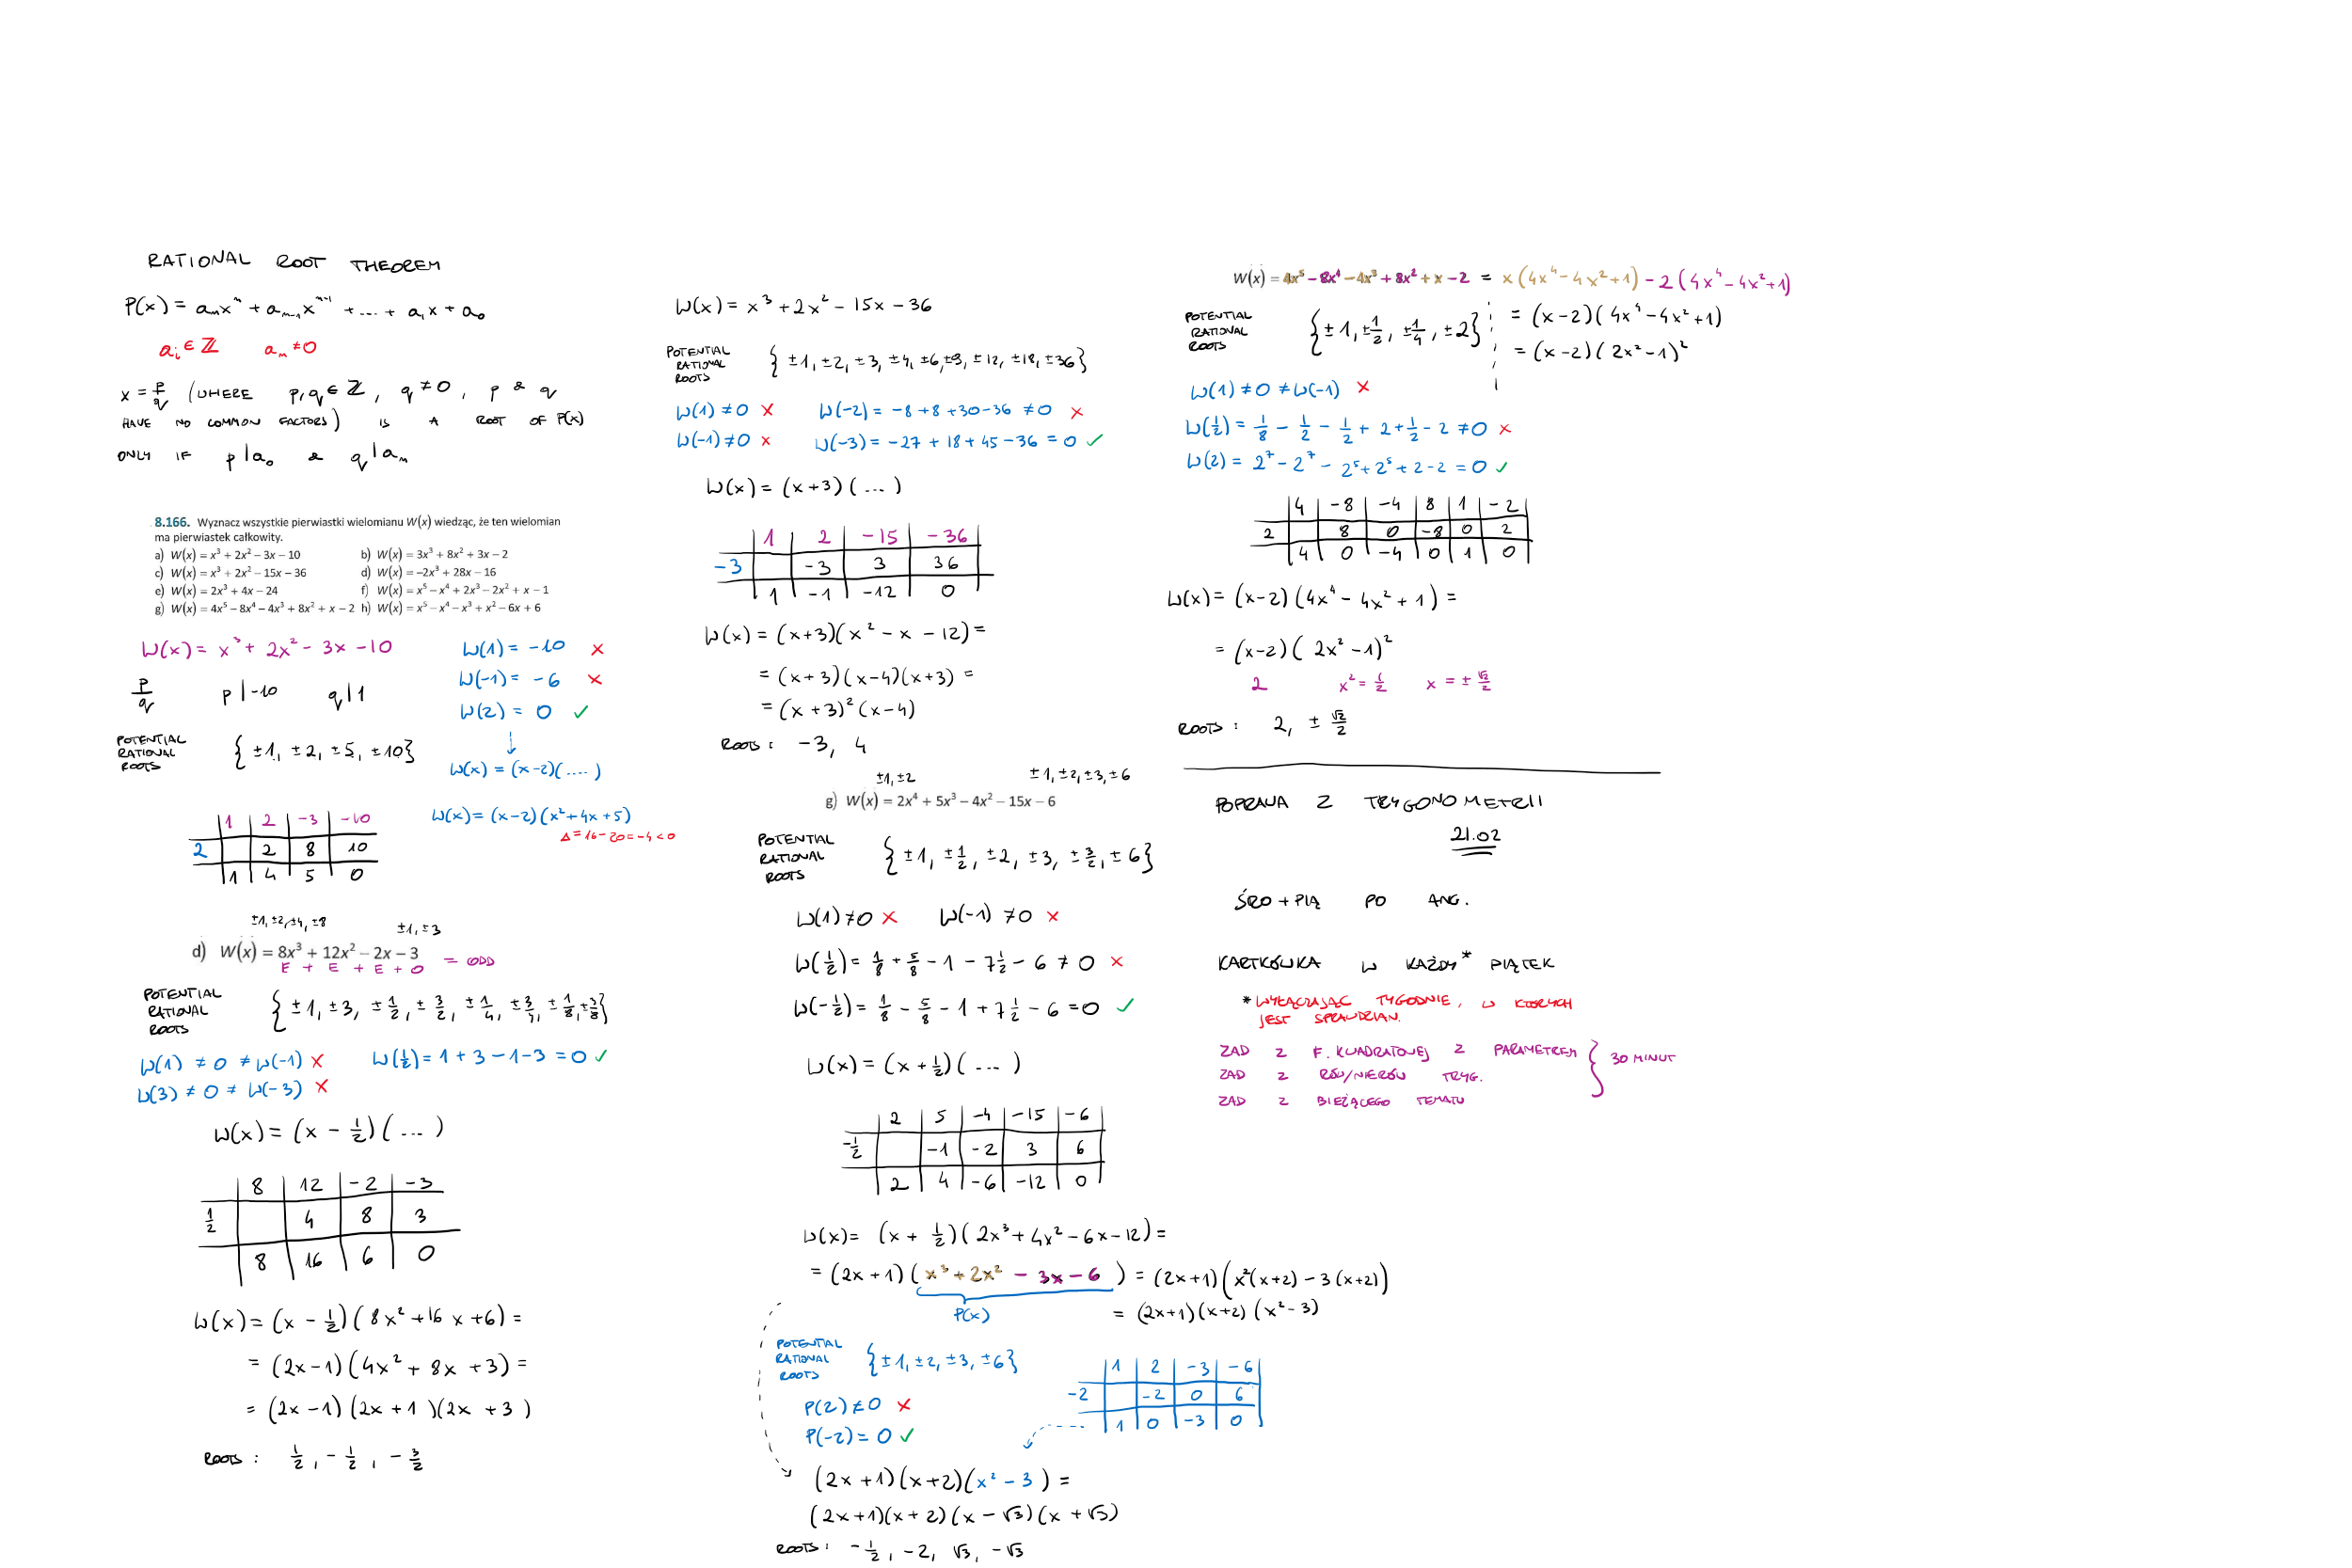 RATIONAL ROOT THEOREM
P(x) = aₙxⁿ + aₙ₋₁xⁿ⁻¹ + .... + a₁x + a₀
aᵢ ∈ ℤ aₙ ≠ 0
x = p/q (WHERE p, q ∈ ℤ, q ≠ 0, p & q
HAVE NO COMMON FACTORS) IS A ROOT OF P(x)
ONLY IF p | a₀ & q | aₙ
8.166. Wyznacz wszystkie pierwiastki wielomianu W(x) wiedząc, że ten wielomian
ma pierwiastek całkowity.
a) W(x) = x³ + 2x² – 3x – 10 b) W(x) = 3x³ + 8x² + 3x – 2
c) W(x) = x³ + 2x² – 15x – 36 d) W(x) = –2x³ + 28x – 16
e) W(x) = 2x³ + 4x – 24 f) W(x) = x⁵ – x⁴ + 2x³ – 2x² + x – 1
g) W(x) = 4x⁵ – 8x⁴ – 4x³ + 8x² + x – 2 h) W(x) = x⁵ – x⁴ – x³ + x² – 6x + 6
W(x) = x³ + 2x² - 3x - 10
p/q p | -10 q | 1
POTENTIAL
RATIONAL
ROOTS
{ ±1, ±2, ±5, ±10}
W(1) = -10 ×
W(-1) = -6 ×
W(2) = 0 ✓
↓
W(x) = (x-2)(....)
1 2 -3 -10
2 2 8 10
1 4 5 0
W(x) = (x-2)(x²+4x+5)
Δ = 16-20 = -4 < 0
±1, ±2, ±4, ±8 ±1, ±3
d) W(x) = 8x³ + 12x² – 2x – 3
E + E + E + O = ODD
POTENTIAL
RATIONAL
ROOTS
{ ±1, ±3, ±1/2, ±3/2, ±1/4, ±3/4, ±1/8, ±3/8}
W(1) ≠ 0 ≠ W(-1) × W(1/2) = 1 + 3 - 1 - 3 = 0 ✓
W(3) ≠ 0 ≠ W(-3) ×
W(x) = (x - 1/2)( ... )
8 12 -2 -3
1/2 4 8 3
8 16 6 0
W(x) = (x - 1/2)(8x² + 16x + 6) =
= (2x-1)(4x² + 8x + 3) =
= (2x-1)(2x+1)(2x+3)
ROOTS : 1/2, -1/2, -3/2
W(x) = x³ + 2x² - 15x - 36
POTENTIAL
RATIONAL
ROOTS
{ ±1, ±2, ±3, ±4, ±6, ±9, ±12, ±18, ±36}
W(1) ≠ 0 × W(-2) = -8 + 8 + 30 - 36 ≠ 0 ×
W(-1) ≠ 0 × W(-3) = -27 + 18 + 45 - 36 = 0 ✓
W(x) = (x+3)( ... )
1 2 -15 -36
-3 -3 3 36
1 -1 -12 0
W(x) = (x+3)(x² - x - 12) =
= (x+3)(x-4)(x+3) =
= (x+3)²(x-4)
ROOTS : -3, 4
±1, ±2 ±1, ±2, ±3, ±6
g) W(x) = 2x⁴ + 5x³ – 4x² – 15x – 6
POTENTIAL
RATIONAL
ROOTS
{ ±1, ±1/2, ±2, ±3, ±3/2, ±6}
W(1) ≠ 0 × W(-1) ≠ 0 ×
W(1/2) = 1/8 + 5/8 - 1 - 7 1/2 - 6 ≠ 0 ×
W(-1/2) = 1/8 - 5/8 - 1 + 7 1/2 - 6 = 0 ✓
W(x) = (x + 1/2)( ... )
2 5 -4 -15 -6
-1/2 -1 -2 3 6
2 4 -6 -12 0
W(x) = (x + 1/2)(2x³ + 4x² - 6x - 12) =
= (2x+1)(x³ + 2x² - 3x - 6) = (2x+1)(x²(x+2) - 3(x+2))
P(x) = (2x+1)(x+2)(x²-3)
POTENTIAL
RATIONAL
ROOTS
{±1, ±2, ±3, ±6}
P(2) ≠ 0 ×
P(-2) = 0 ✓
1 2 -3 -6
-2 -2 0 6
1 0 -3 0
(2x+1)(x+2)(x² - 3) =
(2x+1)(x+2)(x - √3)(x + √3)
ROOTS : -1/2, -2, √3, -√3
W(x) = 4x⁵ – 8x⁴ – 4x³ + 8x² + x – 2 = x(4x⁴ - 4x² + 1) - 2(4x⁴ - 4x² + 1)
= (x-2)(4x⁴ - 4x² + 1)
= (x-2)(2x² - 1)²
POTENTIAL
RATIONAL
ROOTS
{±1, ±1/2, ±1/4, ±2}
W(1) ≠ 0 ≠ W(-1) ×
W(1/2) = 1/8 - 1/2 - 1/2 + 2 + 1/2 - 2 ≠ 0 ×
W(2) = 2⁷ - 2⁷ - 2⁵ + 2⁵ + 2 - 2 = 0 ✓
4 -8 -4 8 1 -2
2 8 0 -8 0 2
4 0 -4 0 1 0
W(x) = (x-2)(4x⁴ - 4x² + 1) =
= (x-2)(2x² - 1)²
2 x² = 1/2 x = ± √2/2
ROOTS : 2, ± √2/2
POPRAWA Z TRYGONOMETRII
21.02
ŚRO + PIĄ PO ANG.
KARTKÓWKA W KAŻDY* PIĄTEK
* WYŁĄCZAJĄC TYGODNIE, W KTÓRYCH
JEST SPRAWDZIAN.
ZAD Z F. KWADRATOWEJ Z PARAMETREM
ZAD Z RÓW/NIERÓW TRYG.
ZAD Z BIEŻĄCEGO TEMATU
30 MINUT